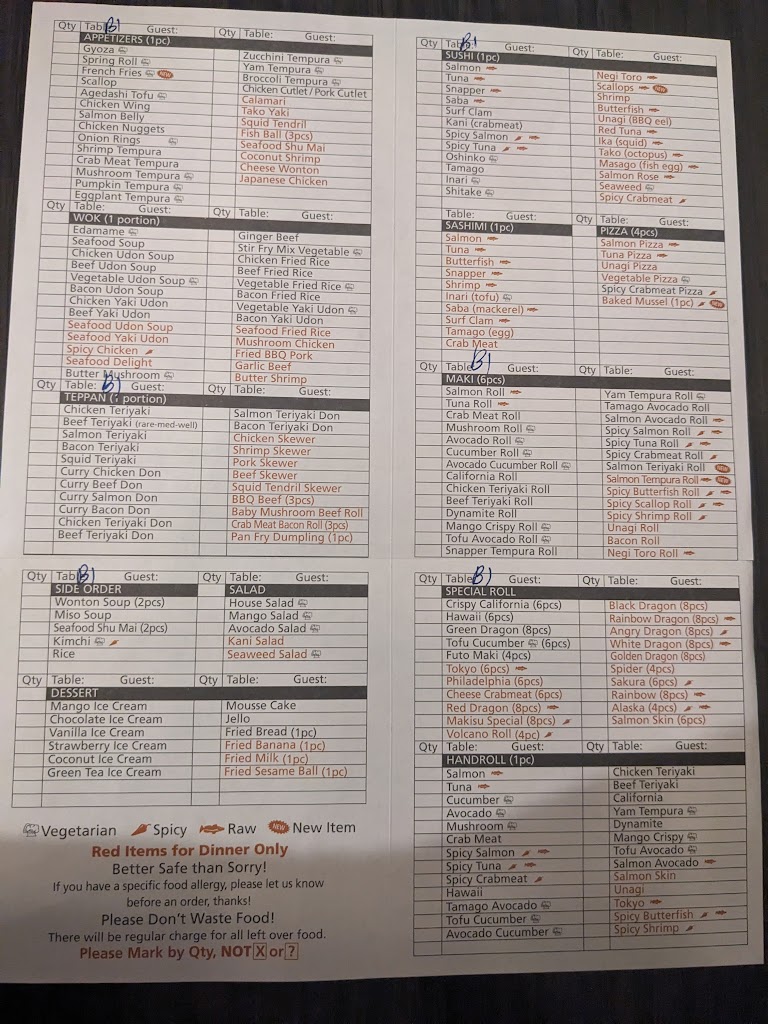 Qty Table: B1 Guest:
APPETIZERS (1pc)
Gyoza
Spring Roll
French Fries NEW
Scallop
Agedashi Tofu
Chicken Wing
Salmon Belly
Chicken Nuggets
Onion Rings
Shrimp Tempura
Crab Meat Tempura
Mushroom Tempura
Pumpkin Tempura
Eggplant Tempura
Qty Table: Guest:
Zucchini Tempura
Yam Tempura
Broccoli Tempura
Chicken Cutlet / Pork Cutlet
Calamari
Tako Yaki
Squid Tendril
Fish Ball (3pcs)
Seafood Shu Mai
Coconut Shrimp
Cheese Wonton
Japanese Chicken
Qty Table: Guest:
WOK (1 portion)
Edamame
Seafood Soup
Chicken Udon Soup
Beef Udon Soup
Vegetable Udon Soup
Bacon Udon Soup
Chicken Yaki Udon
Beef Yaki Udon
Seafood Udon Soup
Seafood Yaki Udon
Spicy Chicken
Seafood Delight
Butter Mushroom
Qty Table: Guest:
Ginger Beef
Stir Fry Mix Vegetable
Chicken Fried Rice
Beef Fried Rice
Vegetable Fried Rice
Bacon Fried Rice
Vegetable Yaki Udon
Bacon Yaki Udon
Seafood Fried Rice
Mushroom Chicken
Fried BBQ Pork
Garlic Beef
Butter Shrimp
Qty Table: B1 Guest:
TEPPAN (1 portion)
Chicken Teriyaki
Beef Teriyaki (rare-med-well)
Salmon Teriyaki
Bacon Teriyaki
Squid Teriyaki
Curry Chicken Don
Curry Beef Don
Curry Salmon Don
Curry Bacon Don
Chicken Teriyaki Don
Beef Teriyaki Don
Qty Table: Guest:
Salmon Teriyaki Don
Bacon Teriyaki Don
Chicken Skewer
Shrimp Skewer
Pork Skewer
Beef Skewer
Squid Tendril Skewer
BBQ Beef (3pcs)
Baby Mushroom Beef Roll
Crab Meat Bacon Roll (3pcs)
Pan Fry Dumpling (1pc)
Qty Table: B1 Guest:
SIDE ORDER
Wonton Soup (2pcs)
Miso Soup
Seafood Shu Mai (2pcs)
Kimchi
Rice
Qty Table: Guest:
SALAD
House Salad
Mango Salad
Avocado Salad
Kani Salad
Seaweed Salad
Qty Table: Guest:
DESSERT
Mango Ice Cream
Chocolate Ice Cream
Vanilla Ice Cream
Strawberry Ice Cream
Coconut Ice Cream
Green Tea Ice Cream
Qty Table: Guest:
Mousse Cake
Jello
Fried Bread (1pc)
Fried Banana (1pc)
Fried Milk (1pc)
Fried Sesame Ball (1pc)
Vegetarian Spicy Raw NEW New Item
Red Items for Dinner Only
Better Safe than Sorry!
If you have a specific food allergy, please let us know
before an order, thanks!
Please Don't Waste Food!
There will be regular charge for all left over food.
Please Mark by Qty, NOT X or ?
Qty Table: B1 Guest:
SUSHI (1pc)
Salmon
Tuna
Snapper
Saba
Surf Clam
Kani (crabmeat)
Spicy Salmon
Spicy Tuna
Oshinko
Tamago
Inari
Shitake
Qty Table: Guest:
Negi Toro
Scallops NEW
Shrimp
Butterfish
Unagi (BBQ eel)
Red Tuna
Ika (squid)
Tako (octopus)
Masago (fish egg)
Salmon Rose
Seaweed
Spicy Crabmeat
Table: Guest:
SASHIMI (1pc)
Salmon
Tuna
Butterfish
Snapper
Shrimp
Inari (tofu)
Saba (mackerel)
Surf Clam
Tamago (egg)
Crab Meat
Qty Table: Guest:
PIZZA (4pcs)
Salmon Pizza
Tuna Pizza
Unagi Pizza
Vegetable Pizza
Spicy Crabmeat Pizza
Baked Mussel (1pc) NEW
Qty Table: B1 Guest:
MAKI (6pcs)
Salmon Roll
Tuna Roll
Crab Meat Roll
Mushroom Roll
Avocado Roll
Cucumber Roll
Avocado Cucumber Roll
California Roll
Chicken Teriyaki Roll
Beef Teriyaki Roll
Dynamite Roll
Mango Crispy Roll
Tofu Avocado Roll
Snapper Tempura Roll
Qty Table: Guest:
Yam Tempura Roll
Tamago Avocado Roll
Salmon Avocado Roll
Spicy Salmon Roll
Spicy Tuna Roll
Spicy Crabmeat Roll
Salmon Teriyaki Roll NEW
Salmon Tempura Roll NEW
Spicy Butterfish Roll
Spicy Scallop Roll
Spicy Shrimp Roll
Unagi Roll
Bacon Roll
Negi Toro Roll
Qty Table: B1 Guest:
SPECIAL ROLL
Crispy California (6pcs)
Hawaii (6pcs)
Green Dragon (8pcs)
Tofu Cucumber (6pcs)
Futo Maki (4pcs)
Tokyo (6pcs)
Philadelphia (6pcs)
Cheese Crabmeat (6pcs)
Red Dragon (8pcs)
Makisu Special (8pcs)
Volcano Roll (4pc)
Qty Table: Guest:
Black Dragon (8pcs)
Rainbow Dragon (8pcs)
Angry Dragon (8pcs)
White Dragon (8pcs)
Golden Dragon (8pcs)
Spider (4pcs)
Sakura (6pcs)
Rainbow (8pcs)
Alaska (4pcs)
Salmon Skin (6pcs)
Qty Table: Guest:
HANDROLL (1pc)
Salmon
Tuna
Cucumber
Avocado
Mushroom
Crab Meat
Spicy Salmon
Spicy Tuna
Spicy Crabmeat
Hawaii
Tamago Avocado
Tofu Cucumber
Avocado Cucumber
Qty Table: Guest:
Chicken Teriyaki
Beef Teriyaki
California
Yam Tempura
Dynamite
Mango Crispy
Tofu Avocado
Salmon Avocado
Salmon Skin
Unagi
Tokyo
Spicy Butterfish
Spicy Shrimp